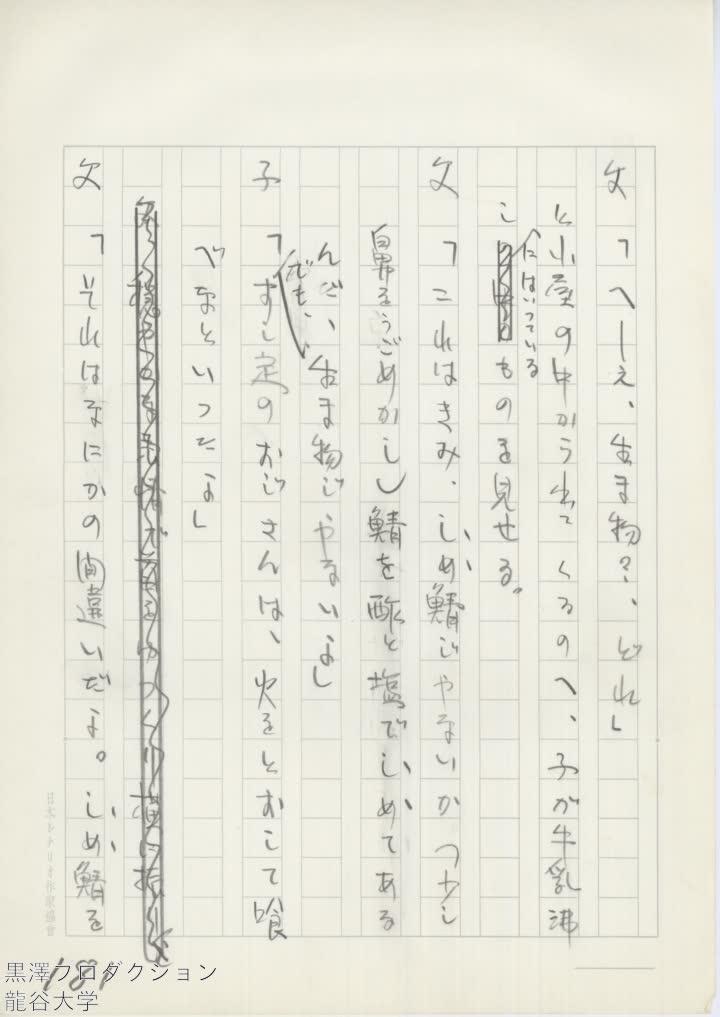 父「へーえ、生ま物?、どれ」
と小屋の中から出てくるのへ、子が牛乳沸
しにはいつているものを見せる。
父「これはきみ、しめ鯖じやないか(少し
鼻をうごめかし)鯖を酢と塩でしめてある
んだ、生ま物じやないよ」
子「でも、すし定のおじさんは、火をとおして喰
べなといつたよ」
父「それはなにかの間違いだよ。しめ鯖を
日本シナリオ作家協會
181
黒澤プロダクション
龍谷大学